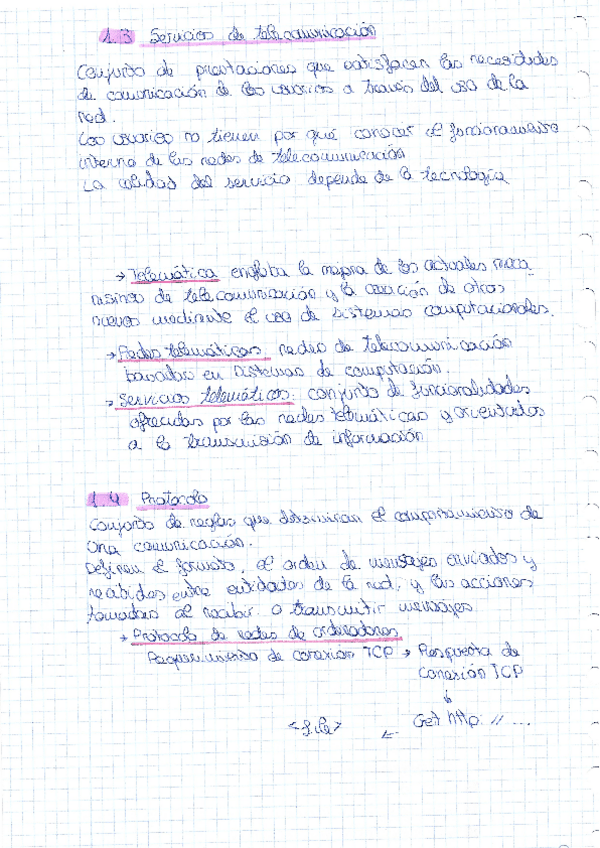 1.3 Servicios de telecomunicación
Conjunto de prestaciones que satisfacen las necesidades
de comunicación de los usuarios a través del uso de la
red.
Los usuarios no tienen por qué conocer el funcionamiento
interno de las redes de telecomunicación
La calidad del servicio depende de la tecnología
→ Telemática engloba la mayoría de los actuales meca_
nismos de telecomunicación y la creación de otros
nuevos mediante el uso de sistemas computacionales.
→ Redes telemáticas. redes de telecomunicación
basadas en sistemas de computación.
→ Servicios telemáticos. conjunto de funcionalidades
ofrecidas por las redes telemáticas y orientados
a la transmisión de información
1.4 Protocolo
Conjunto de reglas que determinan el comportamiento de
una comunicación.
Definen el formato, el orden de mensajes enviados y
recibidos entre entidades de la red, y las acciones
tomadas al recibir o transmitir mensajes
→ Protocolo de redes de ordenadores.
Requerimiento de conexión TCP → Respuesta de
Conexión TCP
↓
<file> ← Get http: // ...